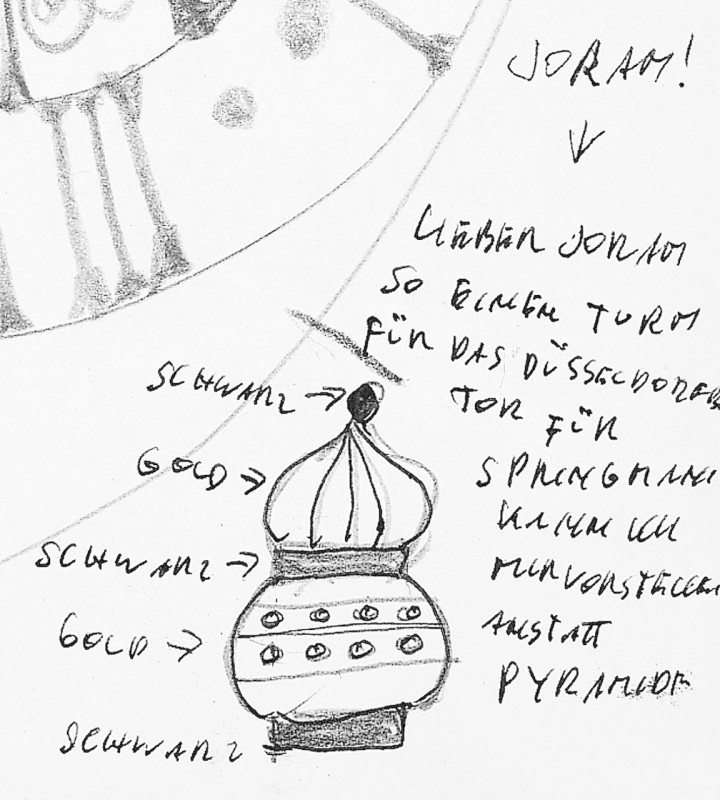 JORAM!
LIEBER JORAM
SO EINEN TURM
FÜR DAS DÜSSELDORFER
TOR FÜR
SPRINGMANN
KANN ICH
MIR VORSTELLEN
ANSTATT
PYRAMIDE
SCHWARZ
GOLD
SCHWARZ
GOLD
SCHWARZ